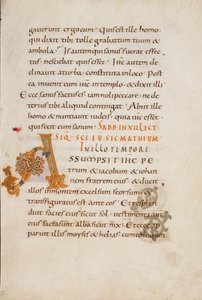 gauerunt ergo eum quis est ille homo
qui dixit tibi tolle grabattum tuum &
ambula Is autem qui sanus fuerat effec
tus nesciebat quis esset ihc autem de
clinauit a turba constituta in loco Post
ea inuenit eum ihc in templo & dixit illi
Ecce sanus factus es iam noli peccare ne de
terius tibi aliquid contingat Abiit ille
homo & nuntiauit iudeis quia ihc esset
qui fecit eum sanum SABB IN XII LECT
SEQ SCI EU SEC MATHEUM
IN ILLO TEMPORE
ASSUMPSIT IHC PE
trum & iacobum & iohan
nem fratrem eius & duxit
illos in montem excelsum seorsum &
transfiguratus est ante eos Et resplen
duit facies eius sicut sol uestimenta aut
eius facta sunt alba sicut nix Et ecce ap
paruit illis moyses & helias cum eo loquen